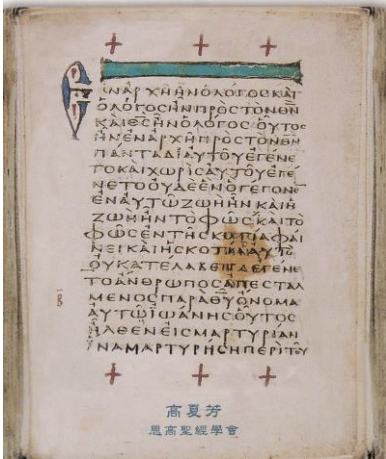 ЄΝΑΡΧΗΗΝΟΛΟΓΟϹΚΑΙ
ΟΛΟΓΟϹΗΝΠΡΟϹΤΟΝΘΝ
ΚΑΙΘϹΗΝΟΛΟΓΟϹΟΥΤΟϹ
ΗΝΕΝΑΡΧΗΠΡΟϹΤΟΝΘΝ
ΠΑΝΤΑΔΙΑΥΤΟΥΕΓΕΝΕ
ΤΟΚΑΙΧΩΡΙϹΑΥΤΟΥΕΓΕ
ΝΕΤΟΟΥΔΕΕΝΟΓΕΓΟΝΕ
ΕΝΑΥΤΩΖΩΗΗΝΚΑΙΗ
ΖΩΗΗΝΤΟΦΩϹΚΑΙΤΟ
ΦΩϹΕΝΤΗϹΚΟΤΙΑΦΑΙ
ΝΕΙΚΑΙΗϹΚΟΤΙΑΑΥΤΟ
ΟΥΚΑΤΕΛΑΒΕΝ ΕΓΕΝΕ
ΤΟΑΝΘΡΩΠΟϹΑΠΕϹΤΑΛ
ΜΕΝΟϹΠΑΡΑΘΥΟΝΟΜΑ
ΑΥΤΩΙΩΑΝΗϹΟΥΤΟϹ
ΗΛΘΕΝΕΙϹΜΑΡΤΥΡΙΑΝ
ΙΝΑΜΑΡΤΥΡΗϹΗΠΕΡΙΤΟΥ
高夏芳
思高聖經學會